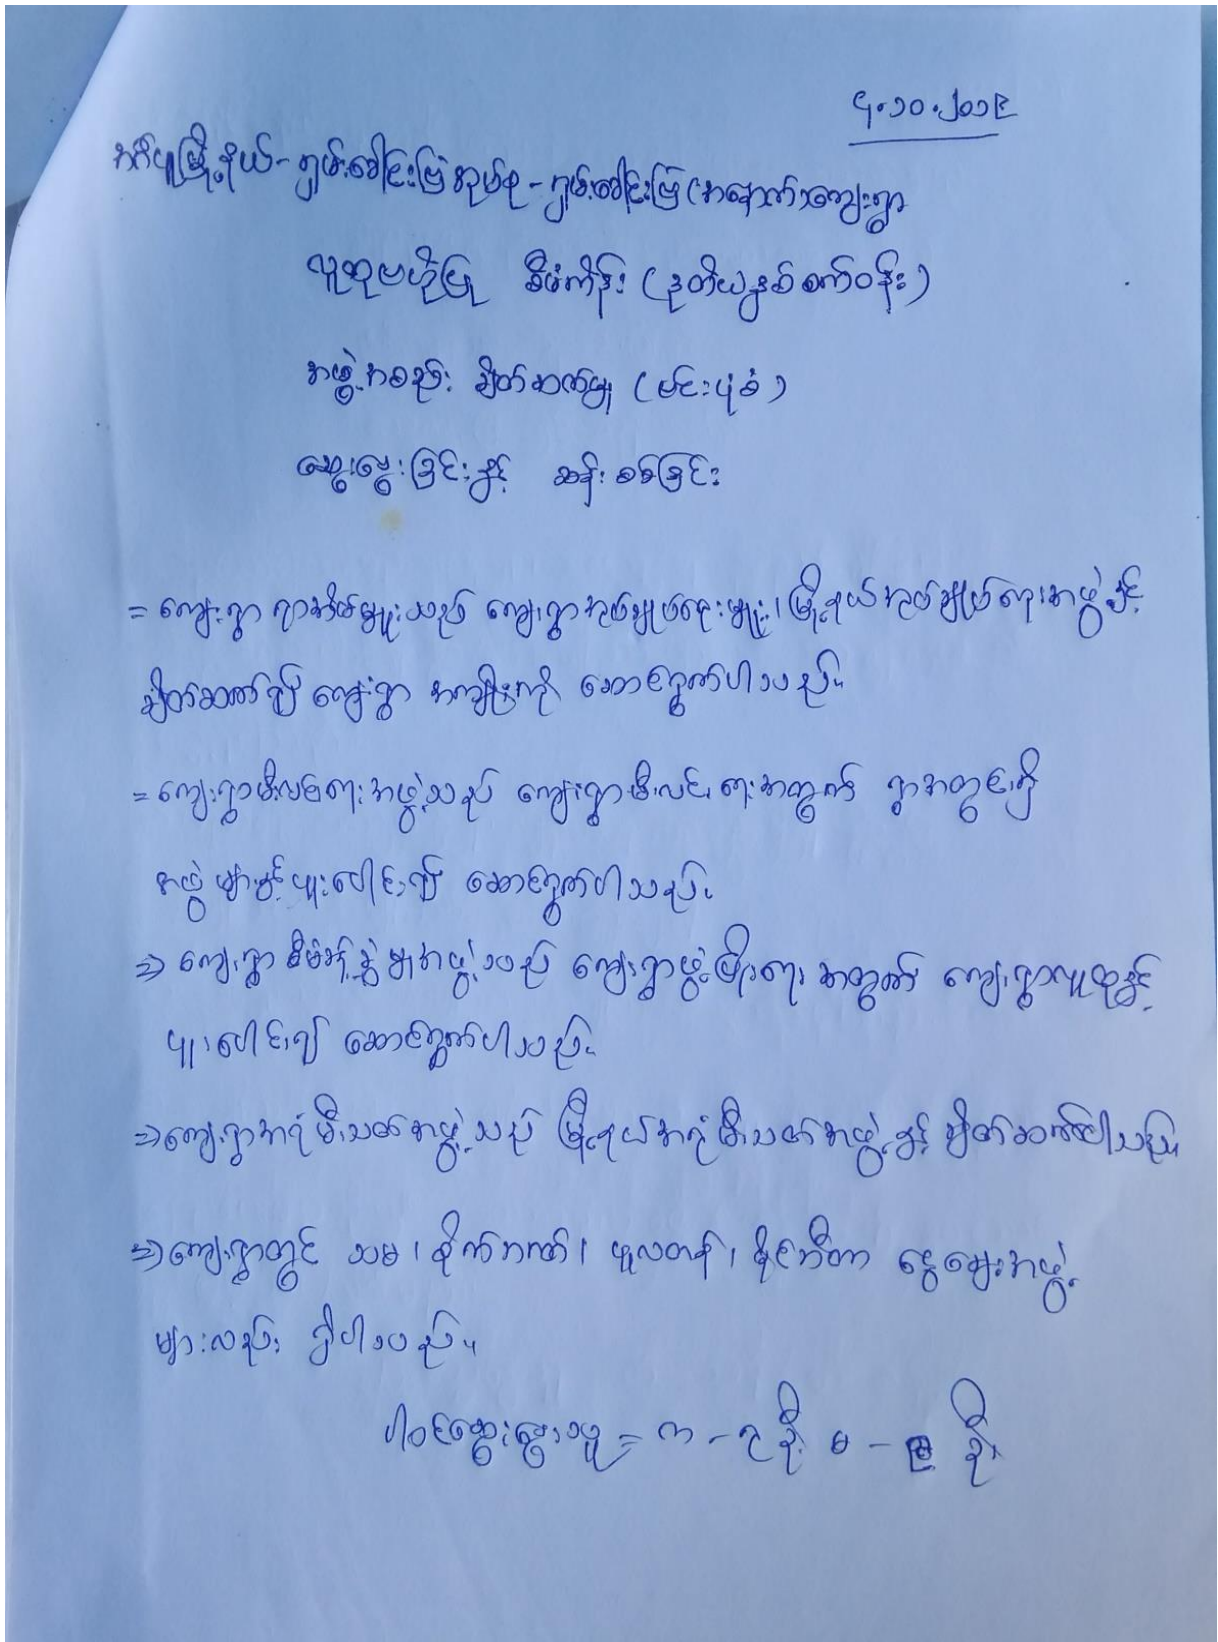 ၄.၁၀.၂၀၁၉
အင်္ဂပူမြို့နယ်-ရှမ်းခေါင်းဗြဲအုပ်စု-ရှမ်းခေါင်းဗြဲ(အနောက်)ကျေးရွာ
လူထုဗဟိုပြု စီမံကိန်း (ဒုတိယနှစ်စက်ဝန်း)
အဖွဲ့အစည်း ချိတ်ဆက်မှု (မင်းပုံစံ)
ဆွေးနွေးခြင်းနှင့် ဆန်းစစ်ခြင်း
= ကျေးရွာ ရာအိမ်မှူးသည် ကျေးရွာအုပ်ချုပ်ရေးမှူး၊ မြို့နယ်အုပ်ချုပ်ရေးအဖွဲ့နှင့်
ချိတ်ဆက်၍ ကျေးရွာ အကျိုးကို ဆောင်ရွက်ပါသည်။
= ကျေးရွာမီးလင်းရေးအဖွဲ့သည် ကျေးရွာမီးလင်းရေးအတွက် ရွာအတွင်းရှိ
အဖွဲ့များနှင့်ပူးပေါင်း၍ ဆောင်ရွက်ပါသည်။
⇒ ကျေးရွာ စီမံခန့်ခွဲမှုအဖွဲ့သည် ကျေးရွာဖွံ့ဖြိုးရေး အတွက် ကျေးရွာလူထုနှင့်
ပူးပေါင်း၍ ဆောင်ရွက်ပါသည်။
⇒ ကျေးရွာအရံမီးသတ်အဖွဲ့သည် မြို့နယ်အရံမီးသတ်အဖွဲ့နှင့် ချိတ်ဆက်ပါသည်။
⇒ ကျေးရွာတွင် သမ၊ စိုက်ဘဏ်၊ ယူလတန်၊ ရိုင်ဘီတာ ငွေချေးအဖွဲ့
များလည်း ရှိပါသည်။
ပါဝင်ဆွေးနွေးသူ = က - ၇ ဦး မ - ဦး